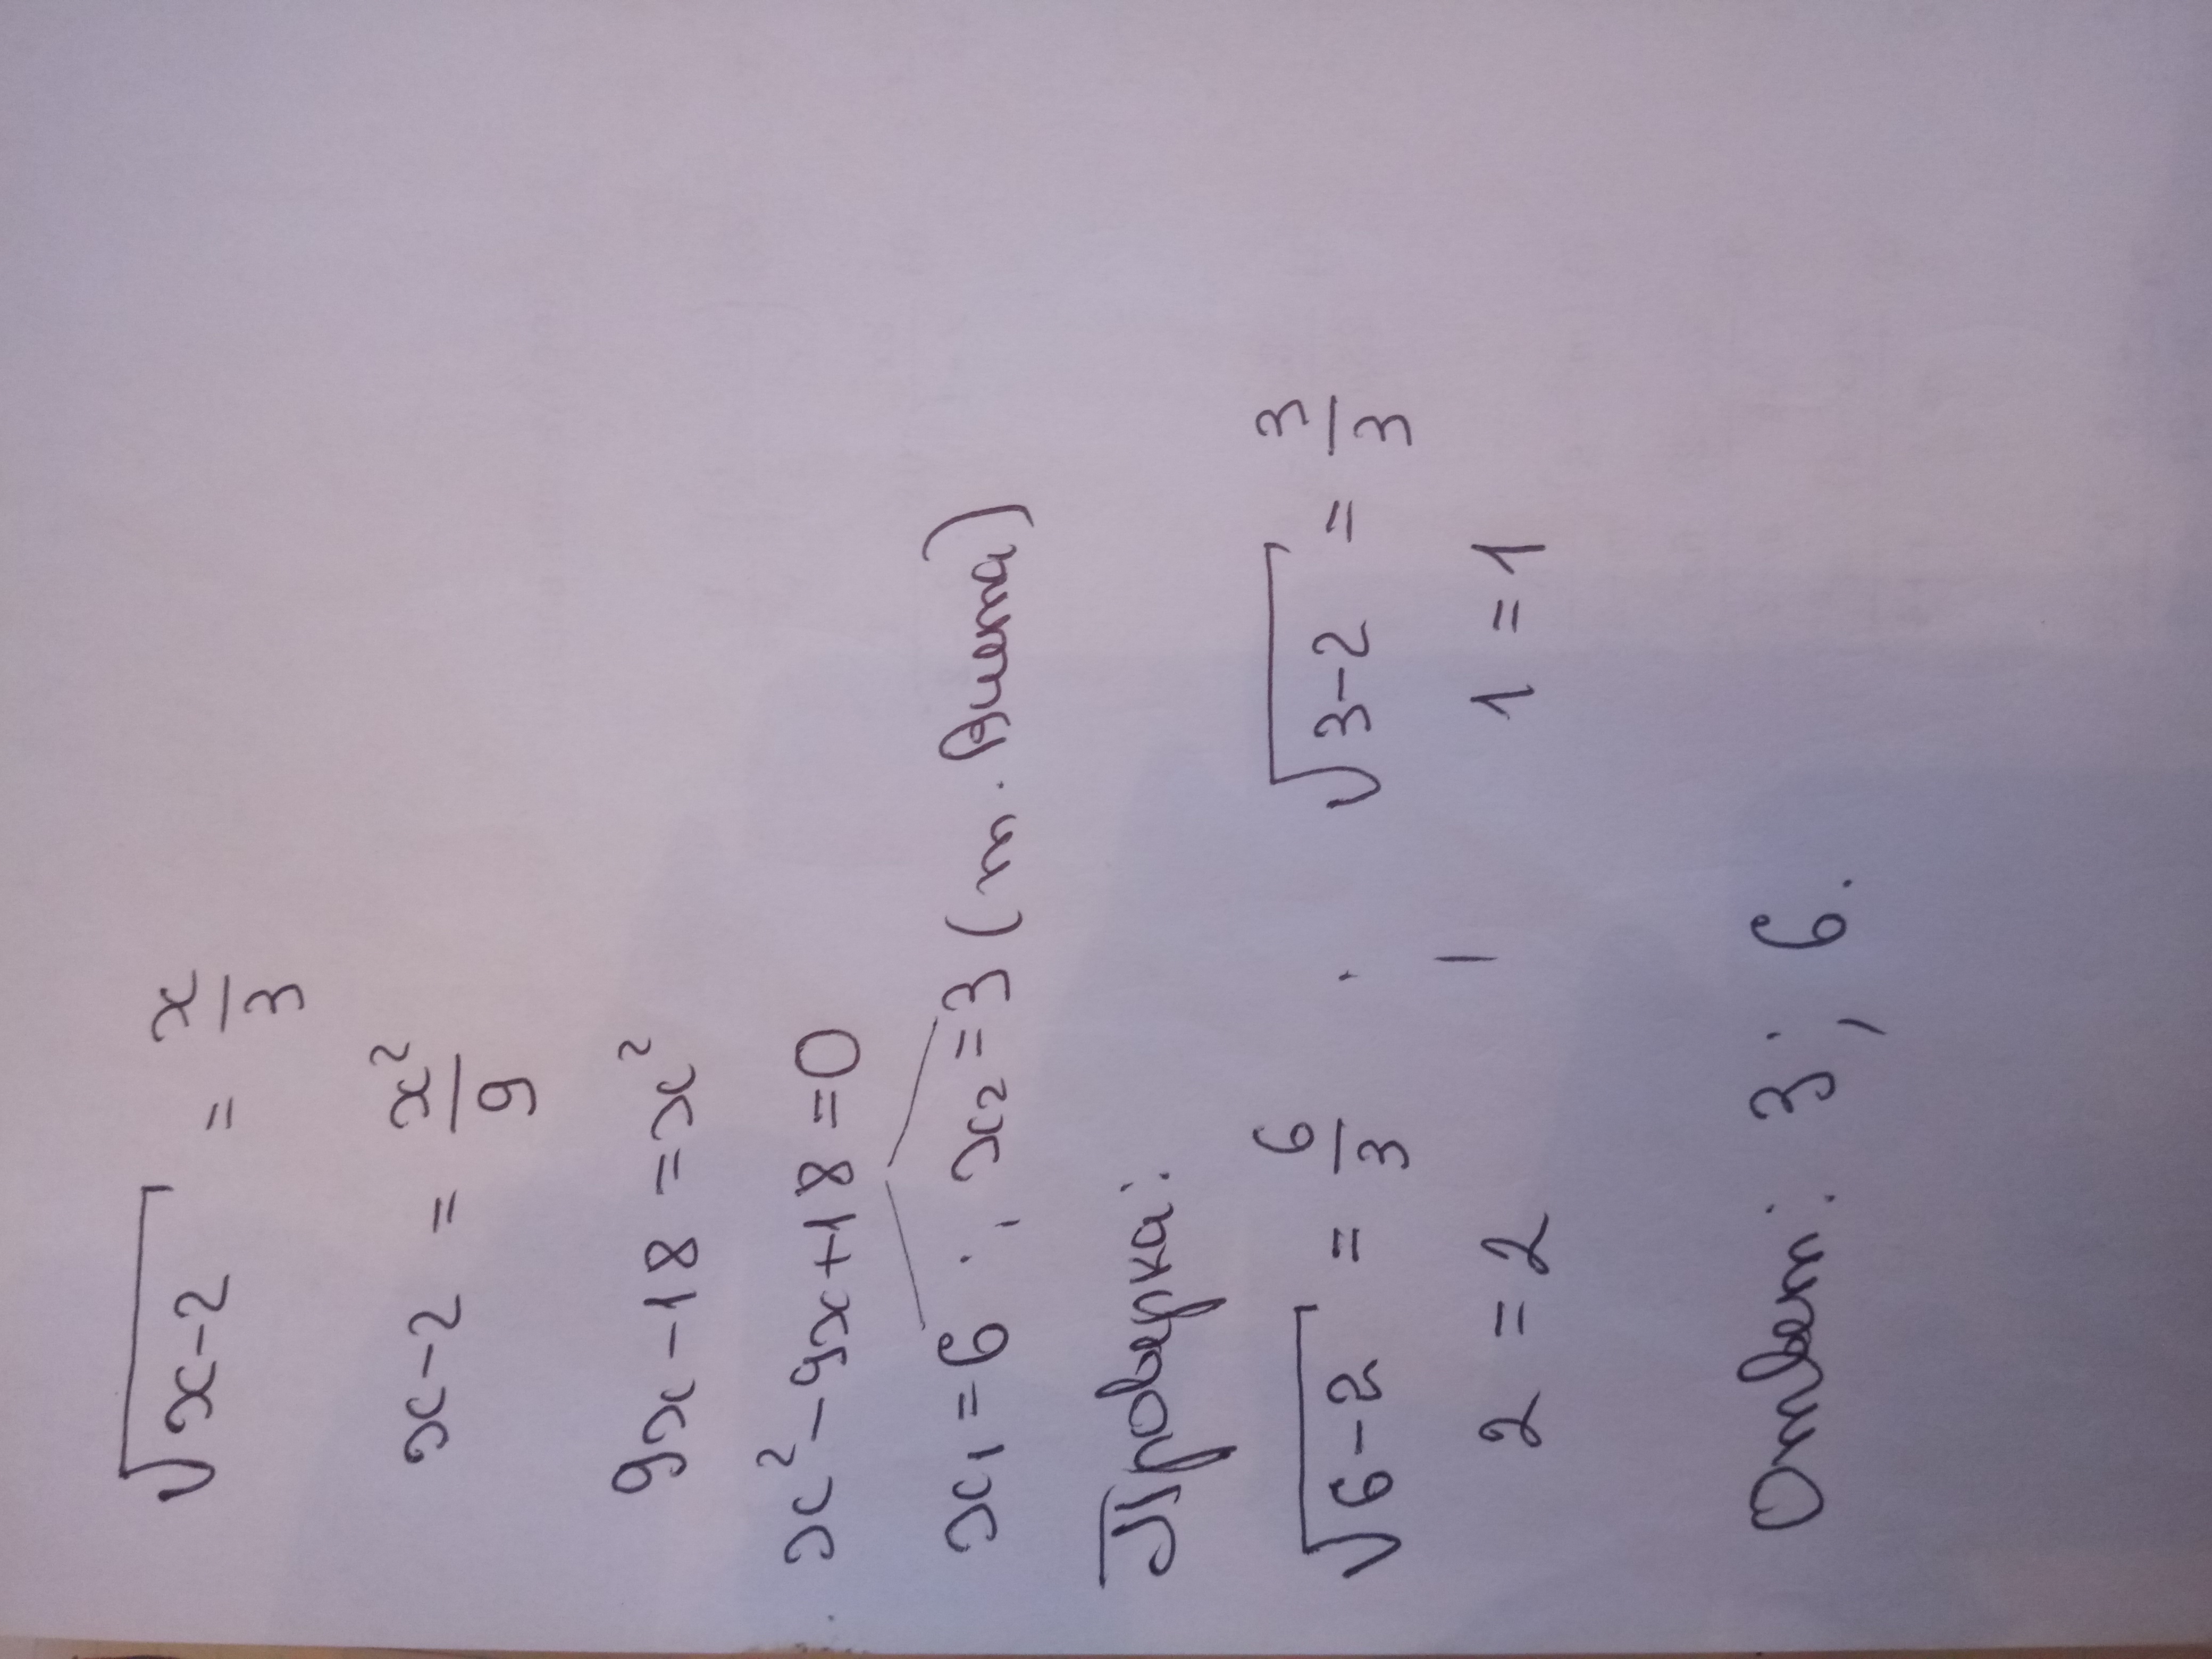 √(x-2) = x/3
x-2 = x²/9
9x-18 = x²
x²-9x+18=0
x₁=6; x₂=3 (т. Виета)
Проверка:
√(6-2) = 6/3; √(3-2) = 3/3
2=2 | 1=1
Ответ: 3; 6.